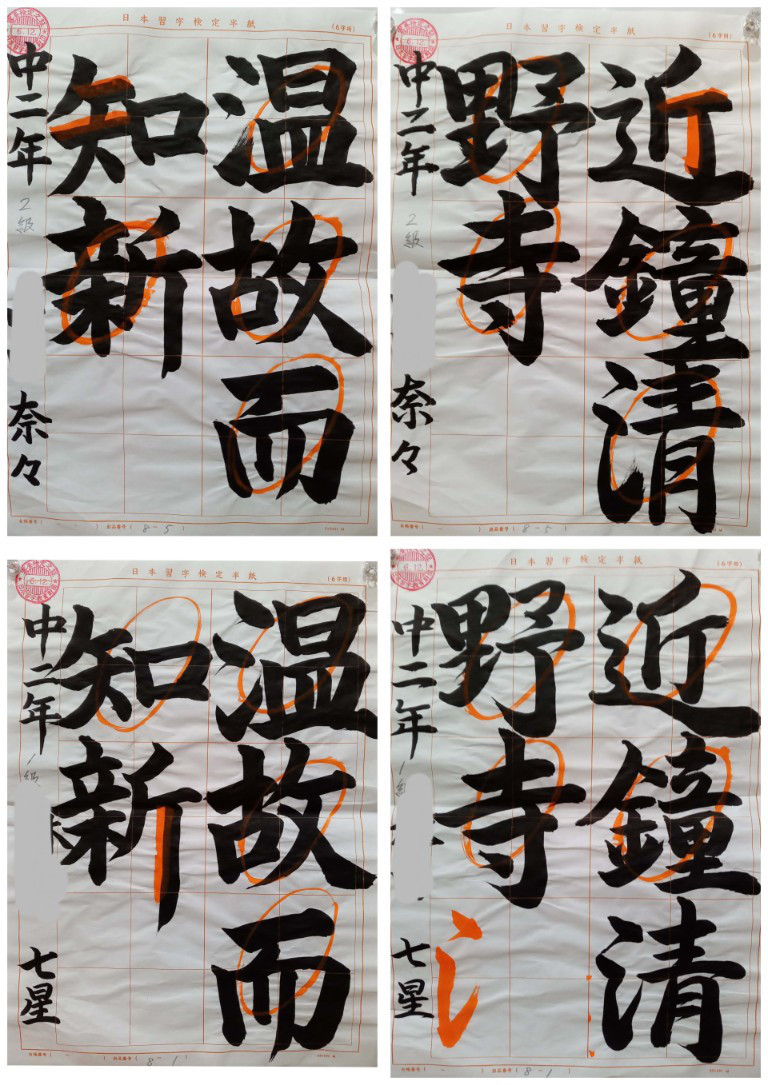 日本習字検定半紙
(6字用)
6.12.
温故而
知新
中二年
2級
奈々
出品番号 ( 8-5 )
日本習字検定半紙
(6字用)
6.12.
近鐘清
野寺
中二年
2級
奈々
出品番号 ( 8-5 )
日本習字検定半紙
(6字用)
6.12.
温故而
知新
中二年
1級
七星
出品番号 ( 8-1 )
日本習字検定半紙
(6字用)
6.12.
近鐘清
野寺
シ
中二年
1級
七星
出品番号 ( 8-1 )